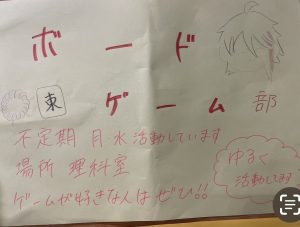 ボード
東
ゲーム部
不定期 月・水 活動しています
場所 理科室
ゲームが好きな人はぜひ!!
ゆるく
活動してます